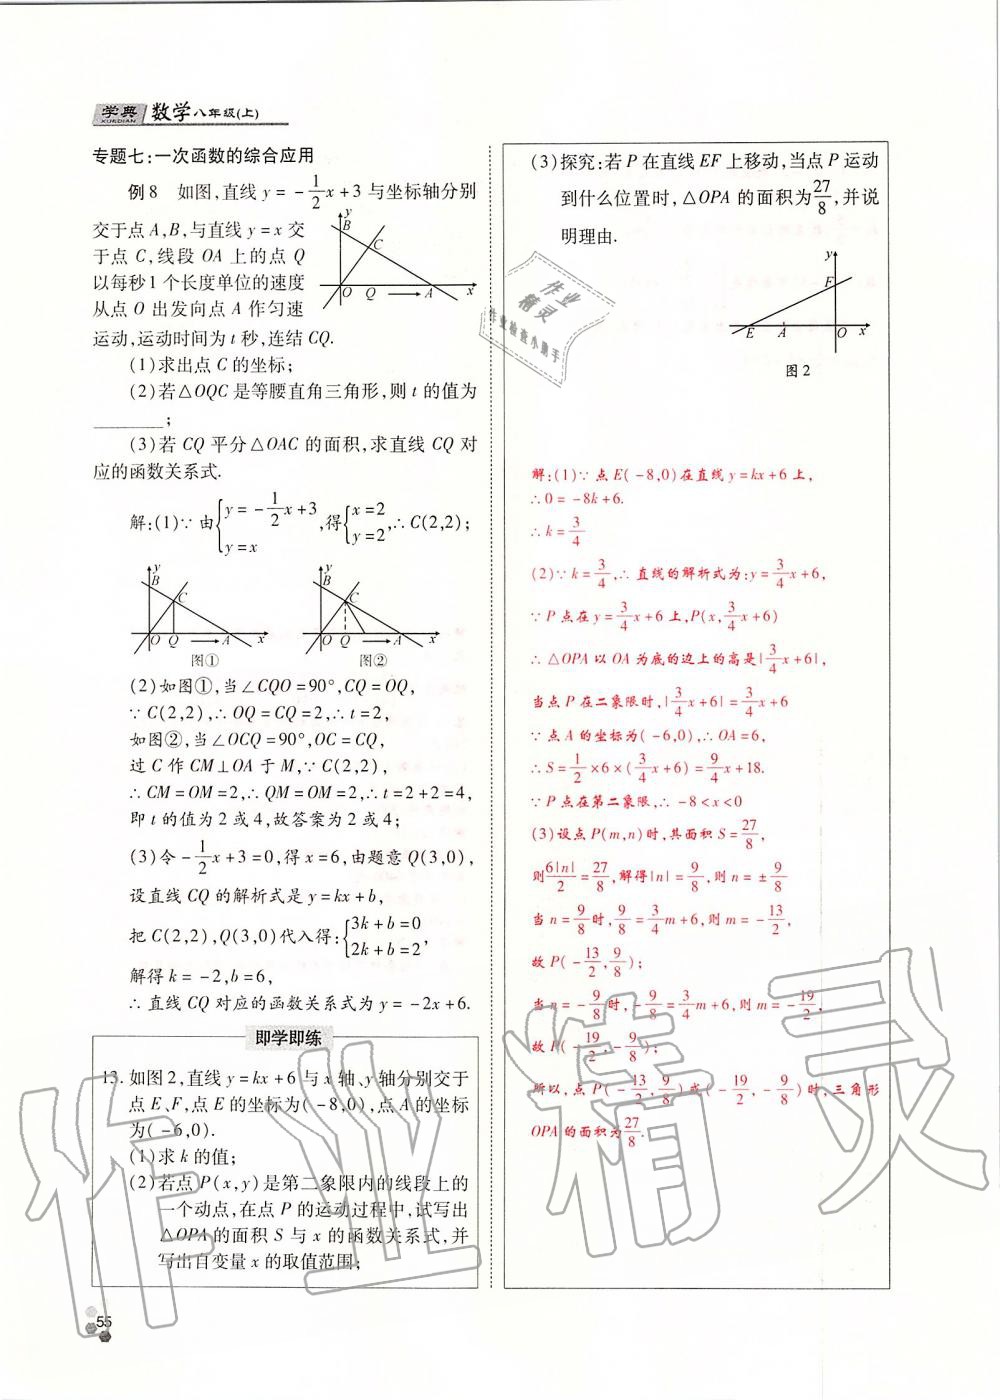 学典 数学八年级(上)
XUEDIAN
专题七:一次函数的综合应用
例8 如图,直线y=-1/2x+3与坐标轴分别
交于点A,B,与直线y=x交
于点C,线段OA上的点Q
以每秒1个长度单位的速度
从点O出发向点A作匀速
运动,运动时间为t秒,连结CQ.
y
B
C
O Q A x
(1)求出点C的坐标;
(2)若△OQC是等腰直角三角形,则t的值为
________;
(3)若CQ平分△OAC的面积,求直线CQ对
应的函数关系式.
解:(1)∵由{y=-1/2x+3, y=x},得{x=2, y=2},∴C(2,2);
y
B
C
O Q A x
图①
y
B
C
O Q A x
图②
(2)如图①,当∠CQO=90°,CQ=OQ,
∵C(2,2),∴OQ=CQ=2,∴t=2,
如图②,当∠OCQ=90°,OC=CQ,
过C作CM⊥OA于M,∵C(2,2),
∴CM=OM=2,∴QM=OM=2,∴t=2+2=4,
即t的值为2或4,故答案为2或4;
(3)令-1/2x+3=0,得x=6,由题意Q(3,0),
设直线CQ的解析式是y=kx+b,
把C(2,2),Q(3,0)代入得:{3k+b=0, 2k+b=2},
解得k=-2,b=6,
∴直线CQ对应的函数关系式为y=-2x+6.
即学即练
13.如图2,直线y=kx+6与x轴、y轴分别交于
点E、F,点E的坐标为(-8,0),点A的坐标
为(-6,0).
(1)求k的值;
(2)若点P(x,y)是第二象限内的线段上的
一个动点,在点P的运动过程中,试写出
△OPA的面积S与x的函数关系式,并
写出自变量x的取值范围;
55
(3)探究:若P在直线EF上移动,当点P运动
到什么位置时,△OPA的面积为27/8,并说
明理由.
y
F
E A O x
图2
解:(1)∵点E(-8,0)在直线y=kx+6上,
∴0=-8k+6.
∴k=3/4
(2)∵k=3/4,∴直线的解析式为:y=3/4x+6,
∵P点在y=3/4x+6上,P(x,3/4x+6)
∴△OPA以OA为底的边上的高是|3/4x+6|,
当点P在二象限时,|3/4x+6|=3/4x+6
∵点A的坐标为(-6,0),∴OA=6,
∴S=1/2×6×(3/4x+6)=9/4x+18.
∵P点在第二象限,∴-8<x<0
(3)设点P(m,n)时,其面积S=27/8,
则6|n|/2=27/8,解得|n|=9/8,则n=±9/8
当n=9/8时,9/8=3/4m+6,则m=-13/2,
故P(-13/2,9/8);
当n=-9/8时,-9/8=3/4m+6,则m=-19/2,
故P(-19/2,-9/8);
所以,点P(-13/2,9/8)或(-19/2,-9/8)时,三角形
OPA的面积为27/8.
作业
精灵
作业检查小助手
作业精灵